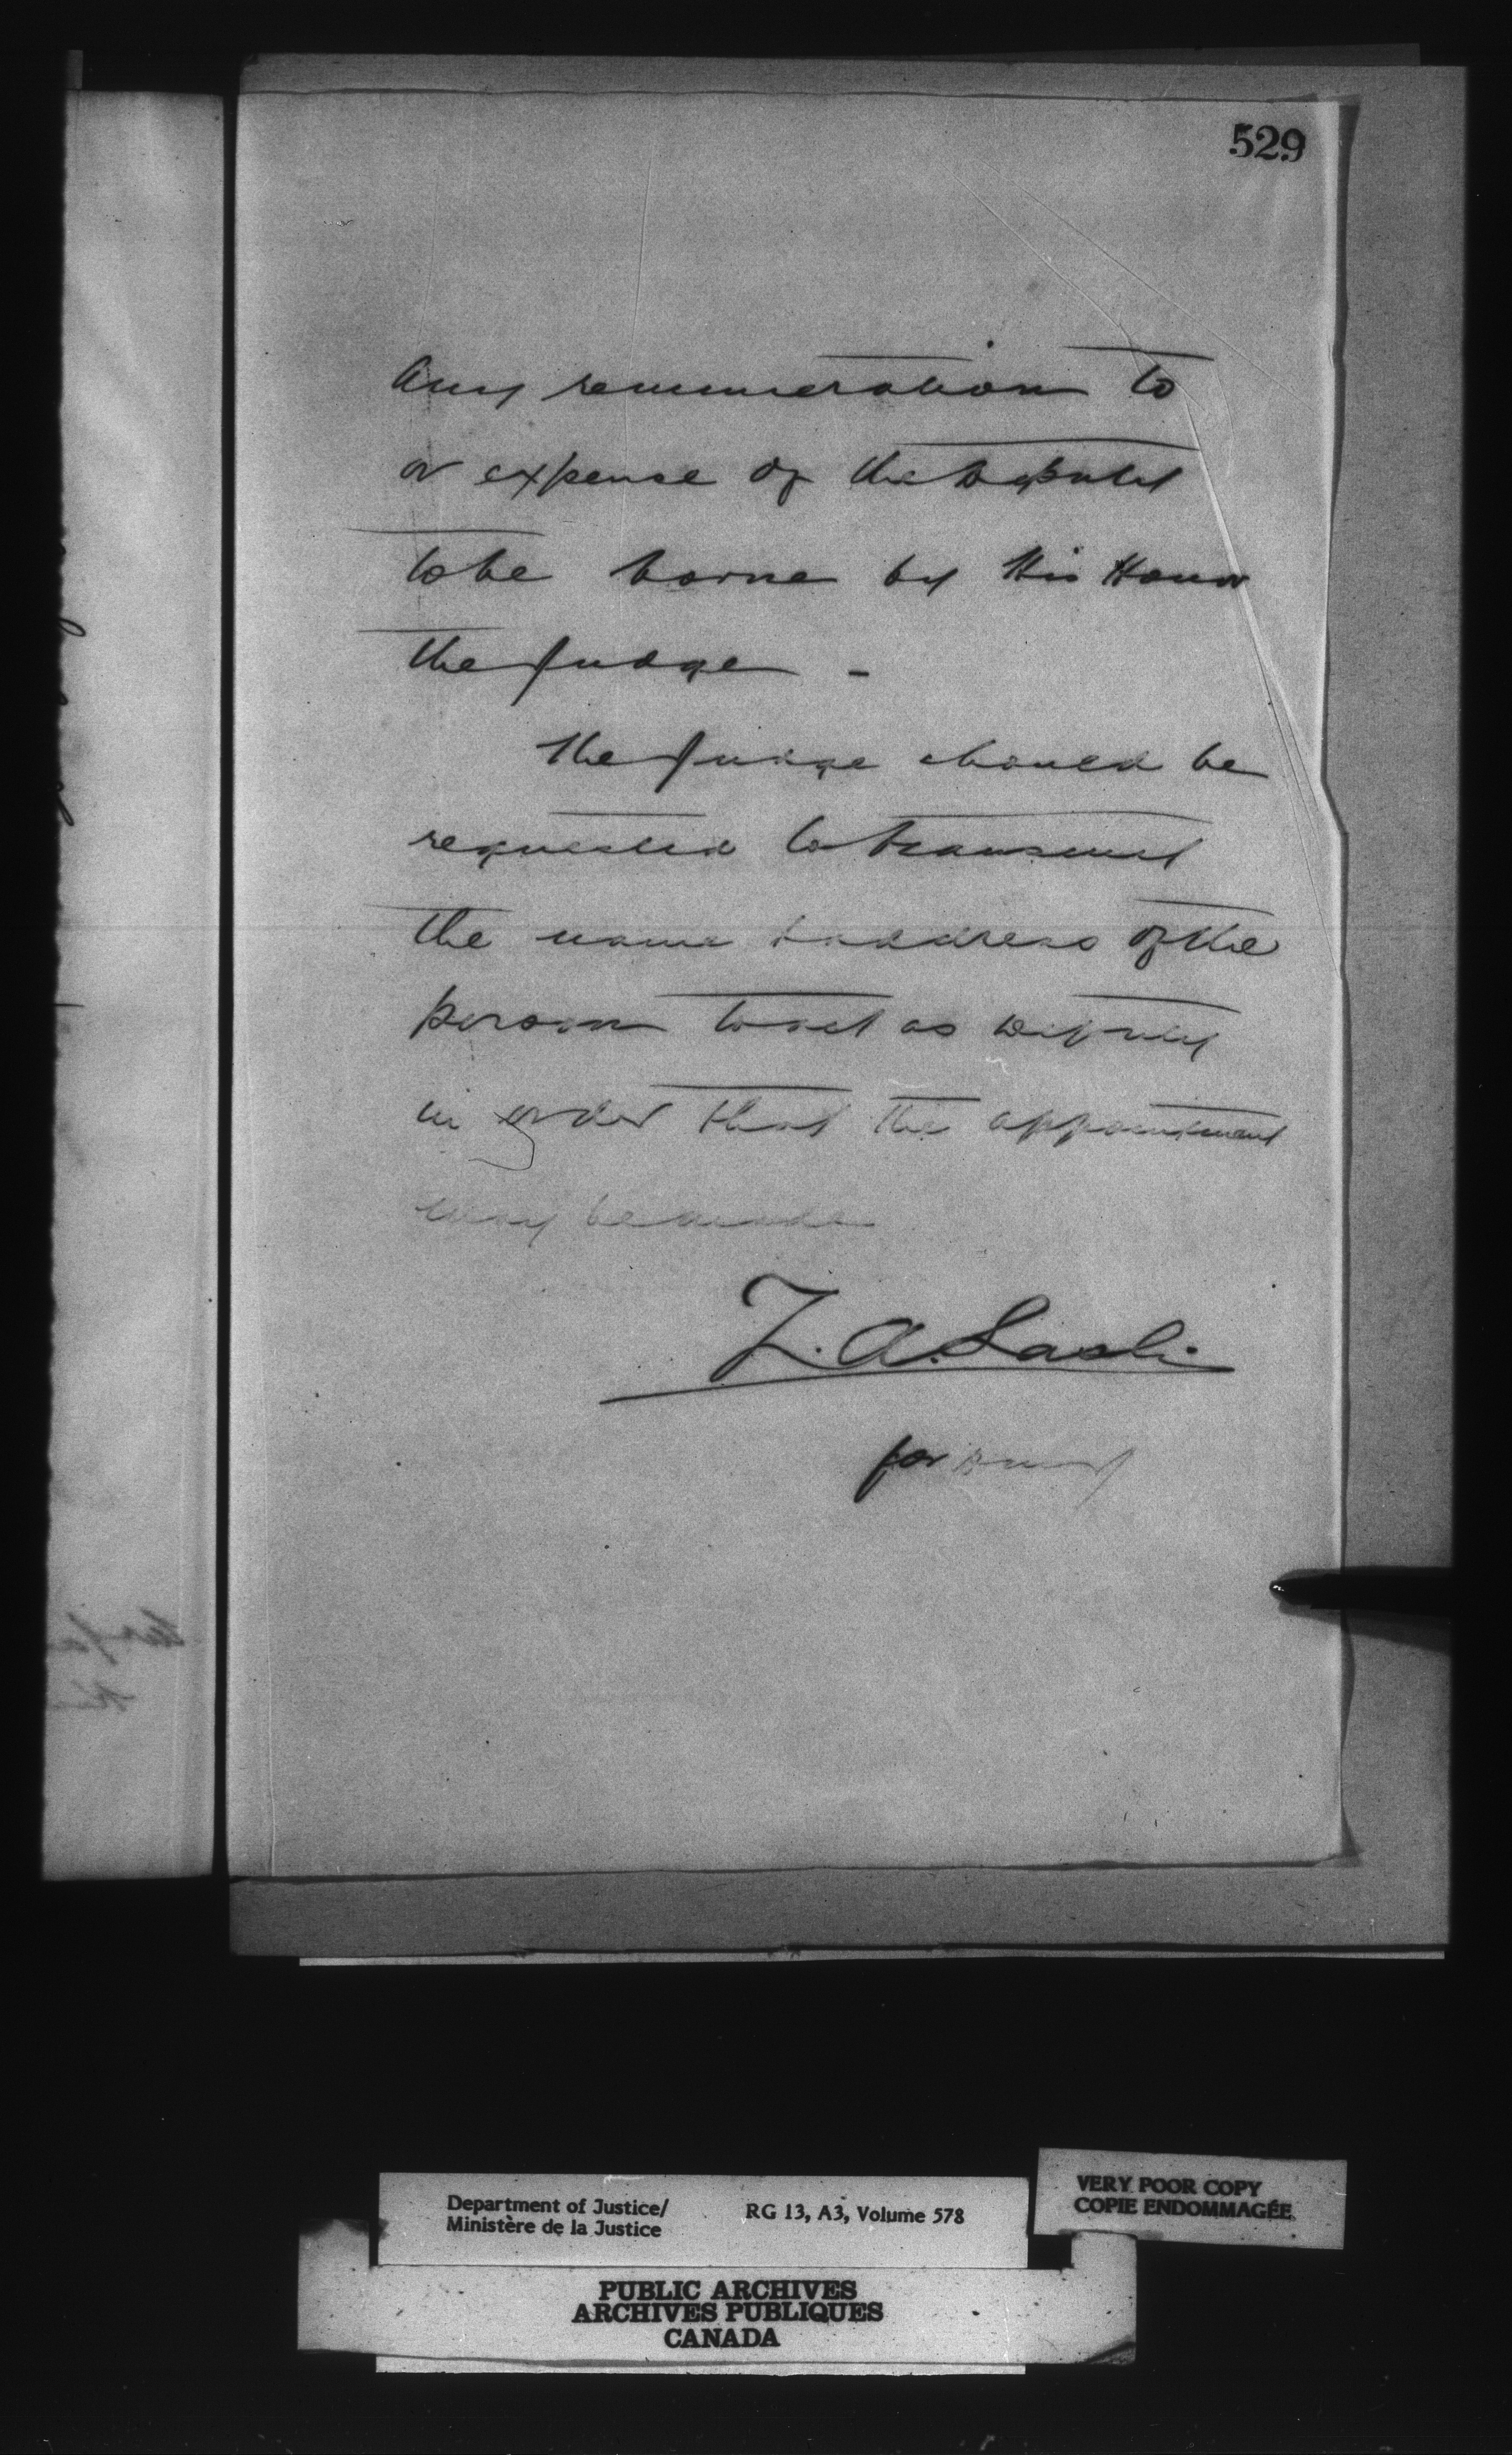 529
any remuneration to
or expense of the Deputy
to be borne by His Honor
the Judge -
The Judge should be
requested to transmit
the name & address of the
person to act as Deputy
in order that the appointment
may be made
Z. A. Lash
for
Department of Justice/
Ministère de la Justice
RG 13, A3, Volume 578
VERY POOR COPY
COPIE ENDOMMAGÉE
PUBLIC ARCHIVES
ARCHIVES PUBLIQUES
CANADA